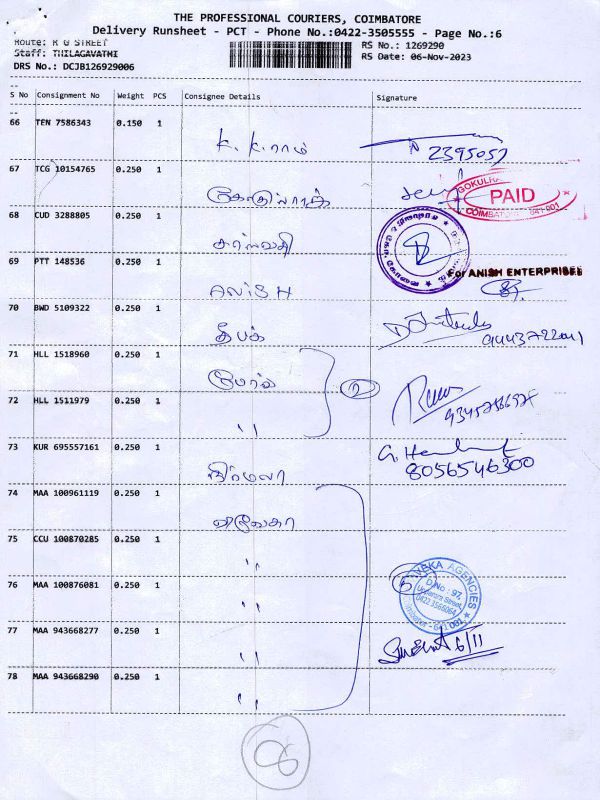 THE PROFESSIONAL COURIERS, COIMBATORE
Delivery Runsheet - PCT - Phone No.:0422-3505555 - Page No.:6
Route: R G STREET
RS No.: 1269290
Staff: THILAGAVATHI
RS Date: 06-Nov-2023
DRS No.: DCJB126929006
S No Consignment No Weight PCS Consignee Details Signature
66 TEN 7586343 0.150 1
K. K. ராம்
2395057
67 TCG 10154765 0.250 1
GOKULRA
PAID
COIMBATORE 641 001
68 CUD 3288805 0.250 1
சரஸ்வதி
69 PTT 148536 0.250 1
ANISH
For ANISH ENTERPRISES
70 BWD 5109322 0.250 1
தீபக்
9443722041
71 HLL 1518960 0.250 1
2
72 HLL 1511979 0.250 1
"
73 KUR 695557161 0.250 1
நிர்மலா
8056546300
74 MAA 100961119 0.250 1
விவேகா
75 CCU 100870285 0.250 1
"
76 MAA 100876081 0.250 1
"
5
VEKA AGENCIES
D.No : 97,
Street,
0422 3566064
641 001
77 MAA 943668277 0.250 1
"
6/11
78 MAA 943668290 0.250 1
"